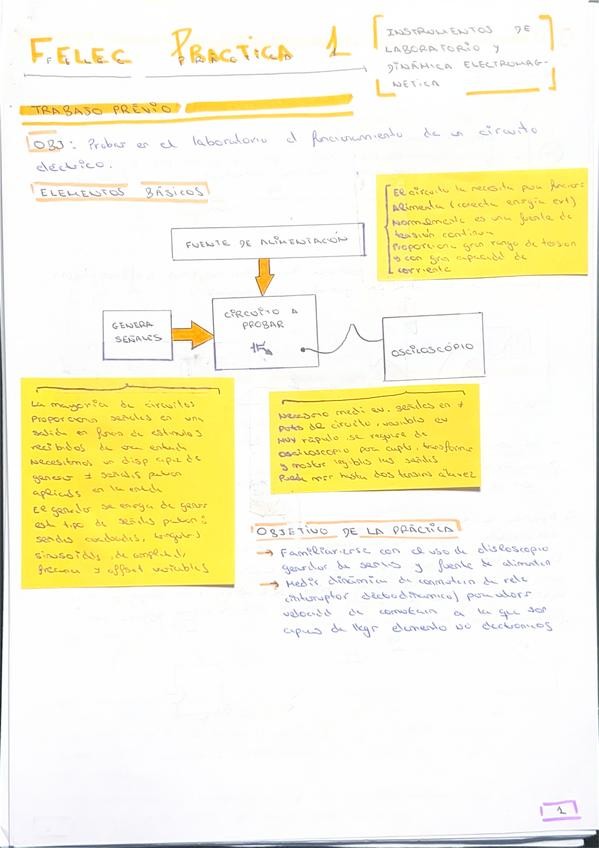 FELEC PRACTICA 1
INSTRUMENTOS DE
LABORATORIO Y
DINÁMICA ELECTROMAG-
NETICA
TRABAJO PREVIO
OBJ: Probar en el laboratorio el funcionamiento de un circuito
eléctrico.
ELEMENTOS BÁSICOS
El circuito la necesita para funcionar
Alimenta (conecta energía ext)
Normalmente es una fuente de
tensión continua
Proporciona gran rango de tension
y con gran capacidad de
corriente
FUENTE DE ALIMENTACIÓN
GENERA
SEÑALES
CIRCUITO A
PROBAR
OSCILOSCOPIO
La mayoría de circuitos
Proporciona señales en una
salida en función de estimulos
recibidos de una entrada
Necesitamos un disp capaz de
generar ≠ señales para
aplicarlas en la entrada
El generador se encarga de generar
este tipo de señales pueden:
señales cuadradas, triangulares
sinusoidales, de amplitud,
frecuencia y offset variables
Necesario medir ev. señales en ≠
Ptos del circuito, variables en
muy rápido se requiere de
osciloscopio para capta, transforma
y mostrar legibles las señales
Puede medir hasta dos tensiones a la vez
OBJETIVO DE LA PRÁCTICA
→ Familiarizarse con el uso de osciloscopio
generador de señales y fuente de alimentacion
→ Medir dinámica de conmutacion de rele
(interruptor electrodinamico) para valorar
velocidad de conmutacion a la que son
capaces de llegar elemento no electronicos
1